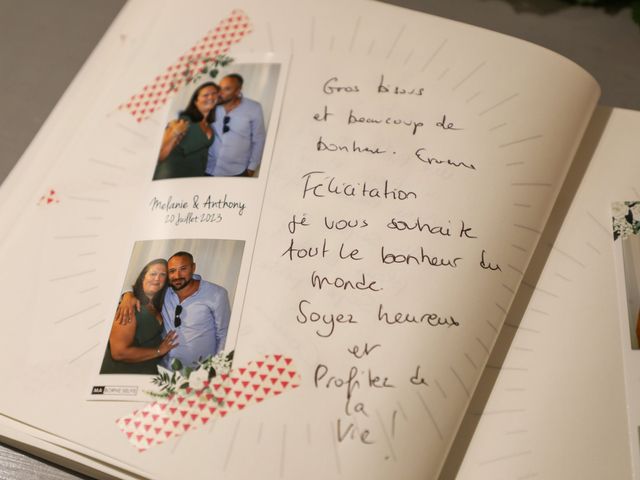 Melanie & Anthony
20 Juillet 2023
MA BORNE SELFIE
Gros bisous
et beaucoup de
bonheur.
Félicitation
je vous souhaite
tout le bonheur du
monde.
Soyez heureux
et
Profitez de
la
vie !